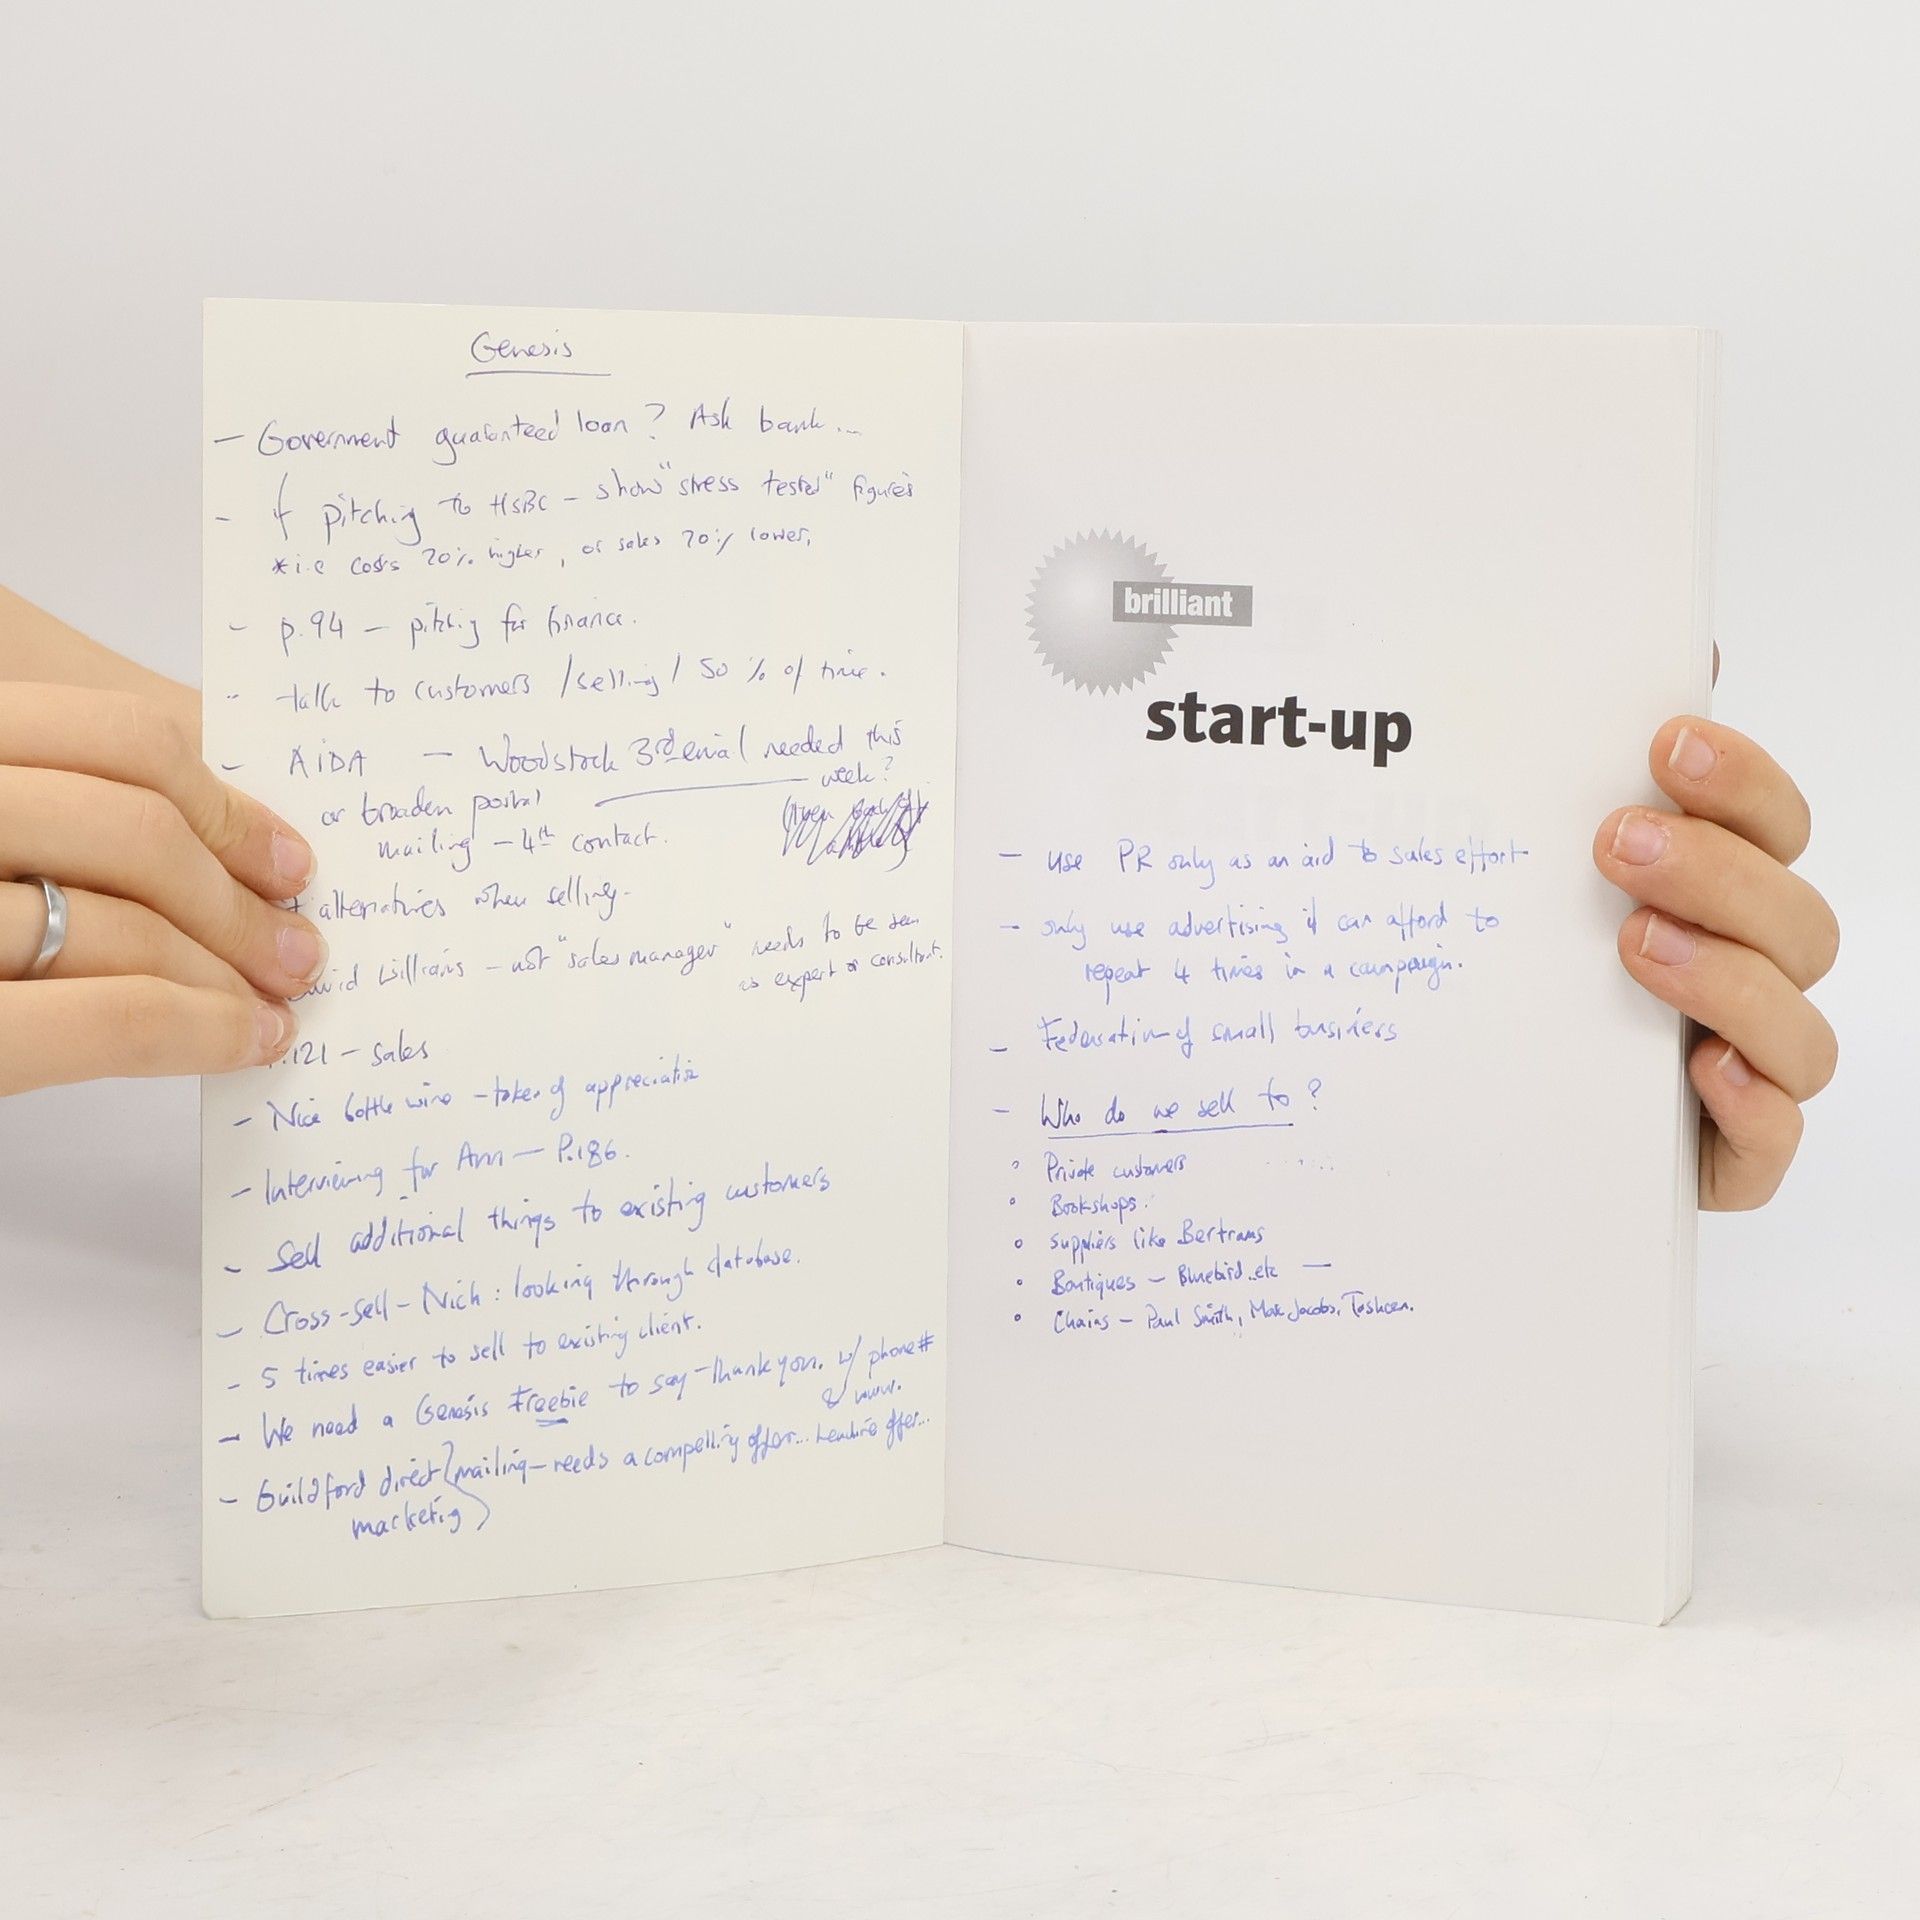 Genesis
— Government guaranteed loan? Ask bank...
- If pitching to HSBC – show "stress tested" figures
*i.e costs 20% higher, or sales 20% lower,
- p.94 – pitching for finance.
- talk to customers /selling/ 50% of time.
- AIDA — Woodstock 3rd email needed this
week?
or broaden postal
mailing – 4th contact.
alternatives when selling.
Williams – not "sales manager" needs to be seen
as expert or consultant.
121 – sales
- Nice bottle wine – token of appreciation
- Interviewing for Ann – P.186.
- Sell additional things to existing customers
- Cross-sell – Nick: looking through database.
- 5 times easier to sell to existing client.
- We need a Genesis Freebie to say – thank you. w/ phone #
& www.
- Guildford direct mailing – needs a compelling offer... headline offer...
marketig
brilliant
start-up
- use PR only as an aid to sales effort
- only use advertising if can afford to
repeat 4 times in a campaign.
- Federation of small business
- Who do we sell to?
° Private customers
° Bookshops.
° suppliers like Bertrams
° Boutiques – Bluebird..etc —
° Chains – Paul Smith, Marc Jacobs, Tashcen.